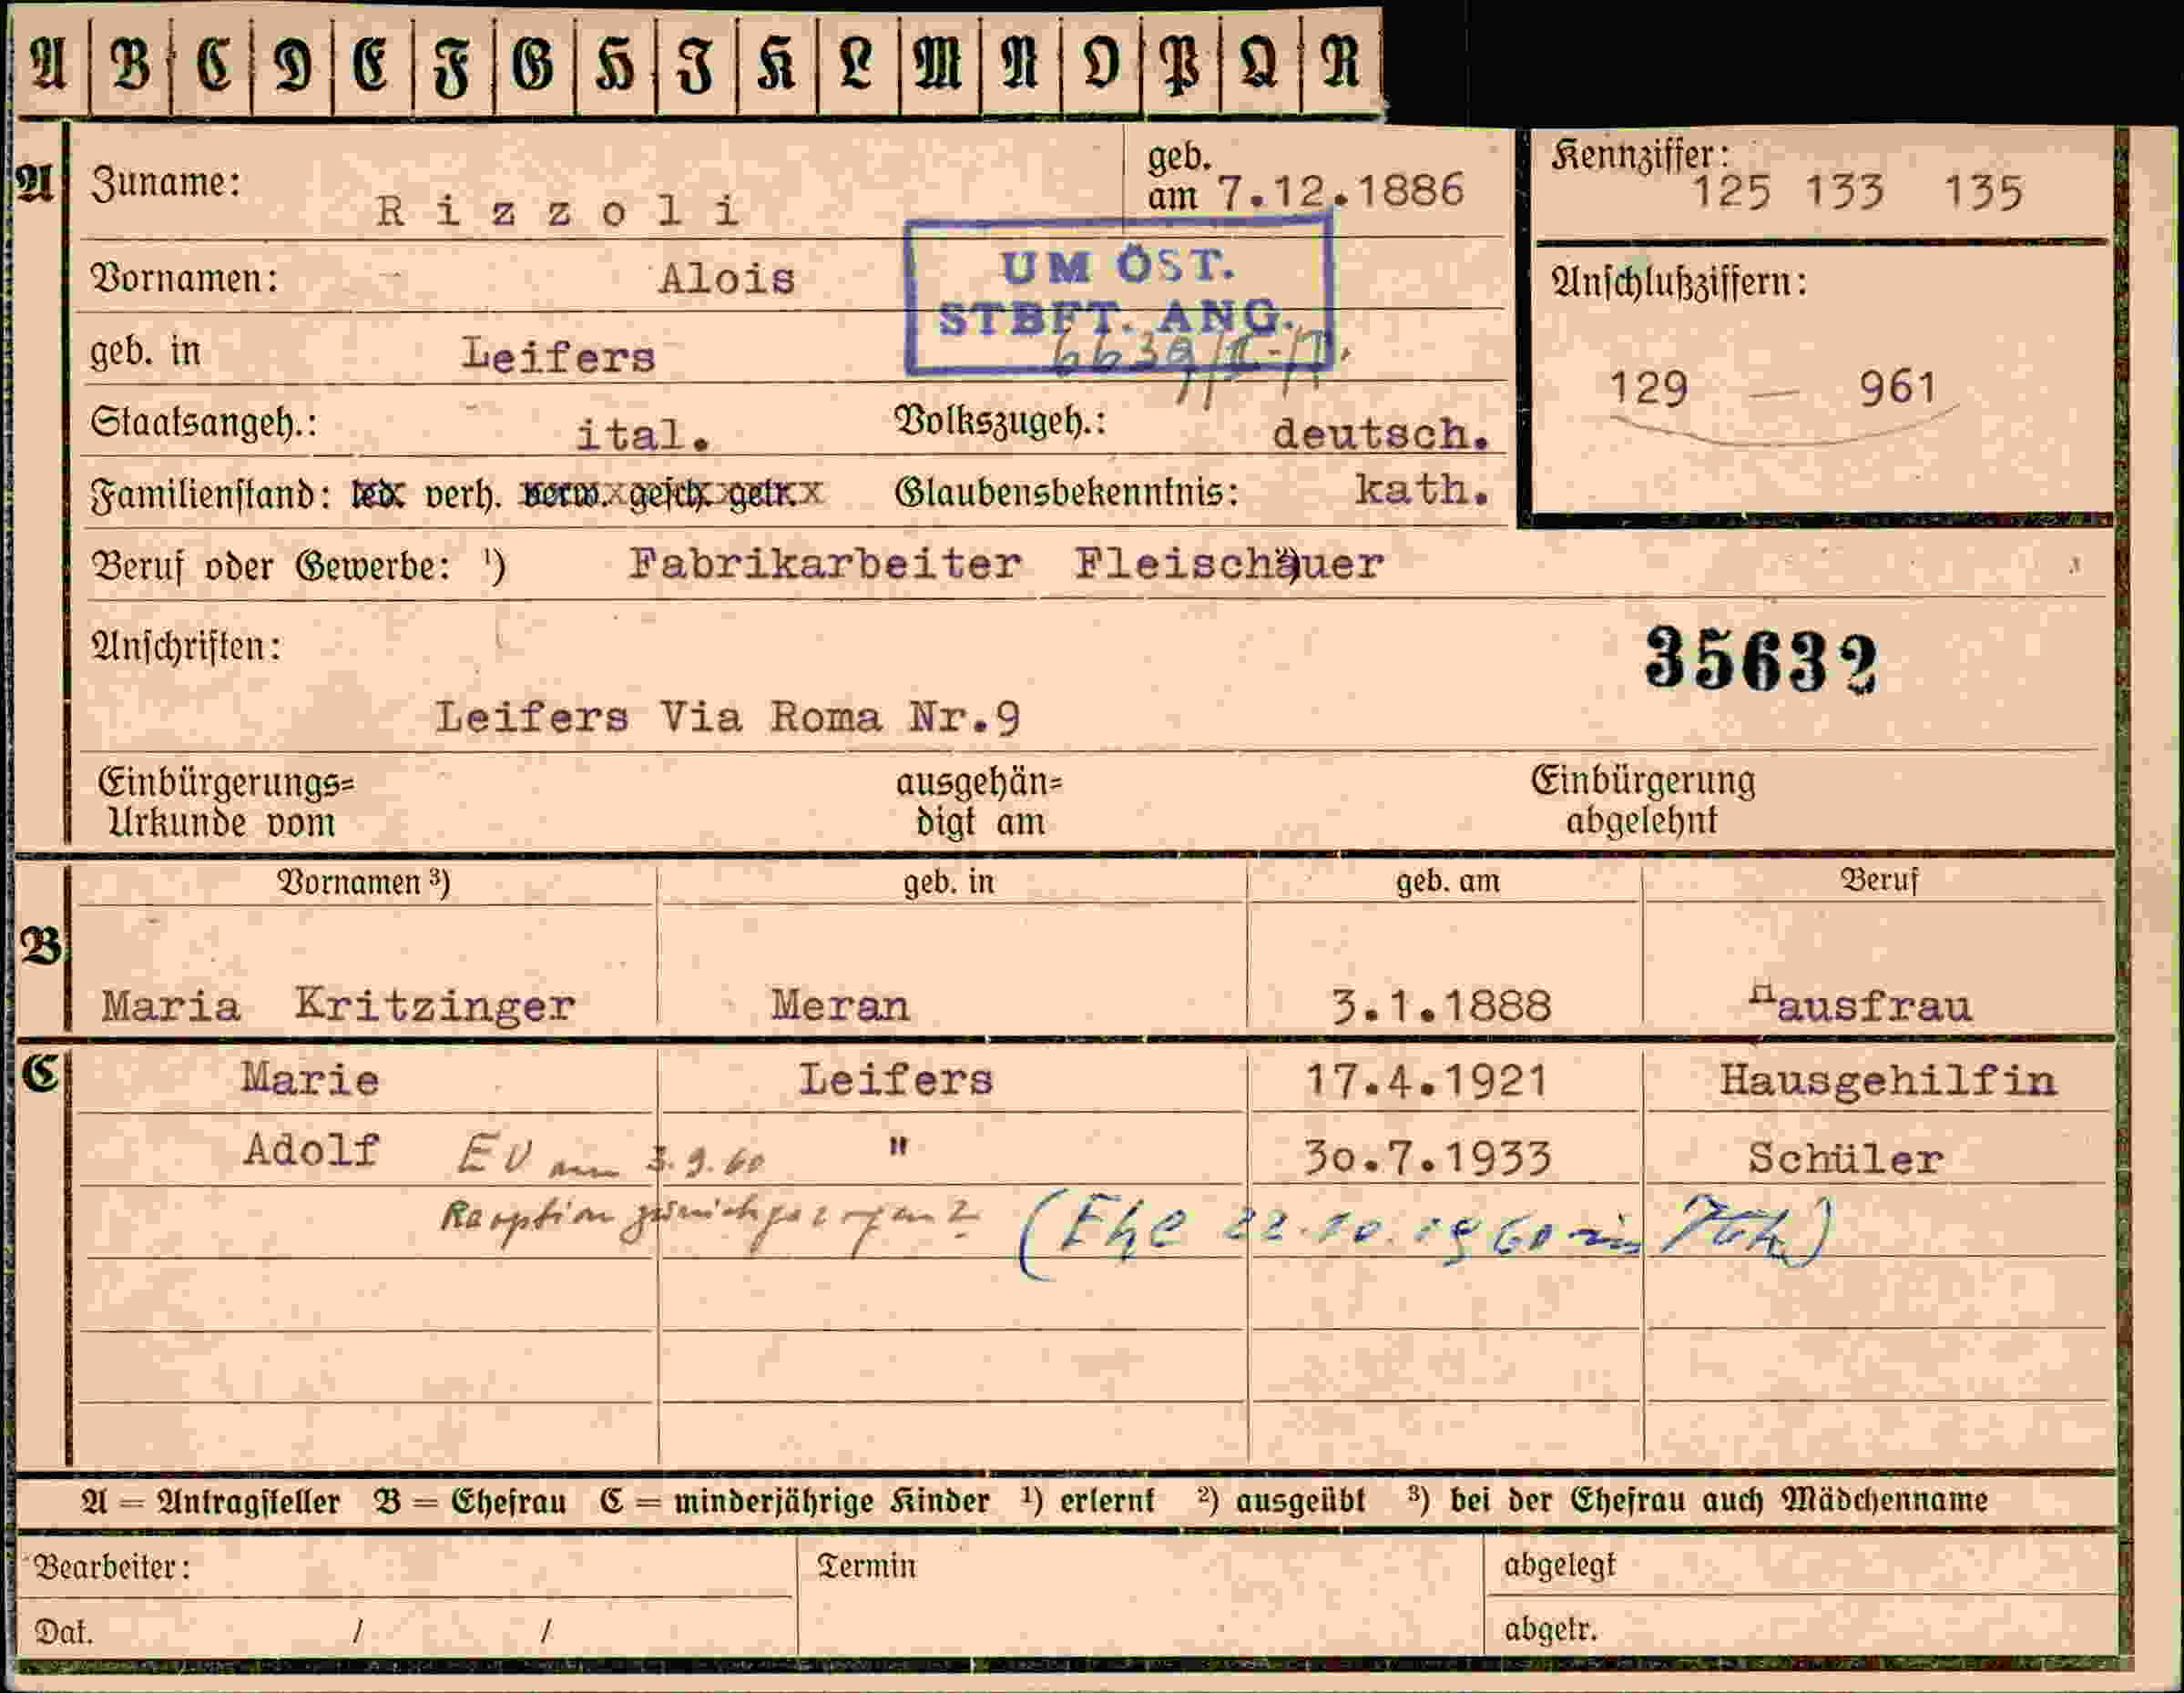 A B C D E F G H I K L M N O P Q R
A Zuname: Rizzoli geb. am 7.12.1886 Kennziffer: 125 133 135
Vornamen: Alois UM ÖST. Anschlußziffern:
geb. in Leifers STBFT. ANG.
Staatsangeh.: ital. Volkszugeh.: deutsch. 129 — 961
Familienstand: led. verh. verw. gesch. getr. Glaubensbekenntnis: kath.
Beruf oder Gewerbe: ¹) Fabrikarbeiter Fleischauer
Anschriften: 35632
Leifers Via Roma Nr.9
Einbürgerungs= ausgehän= Einbürgerung
Urkunde vom digt am abgelehnt
Vornamen ³) geb. in geb. am Beruf
B
Maria Kritzinger Meran 3.1.1888 Hausfrau
C Marie Leifers 17.4.1921 Hausgehilfin
Adolf EV am 3.9.60 " 3o.7.1933 Schüler
(Ehe 22.10.1960 in
A = Antragsteller B = Ehefrau C = minderjährige Kinder ¹) erlernt ²) ausgeübt ³) bei der Ehefrau auch Mädchenname
Bearbeiter: Termin abgelegt
Dat. / / abgetr.